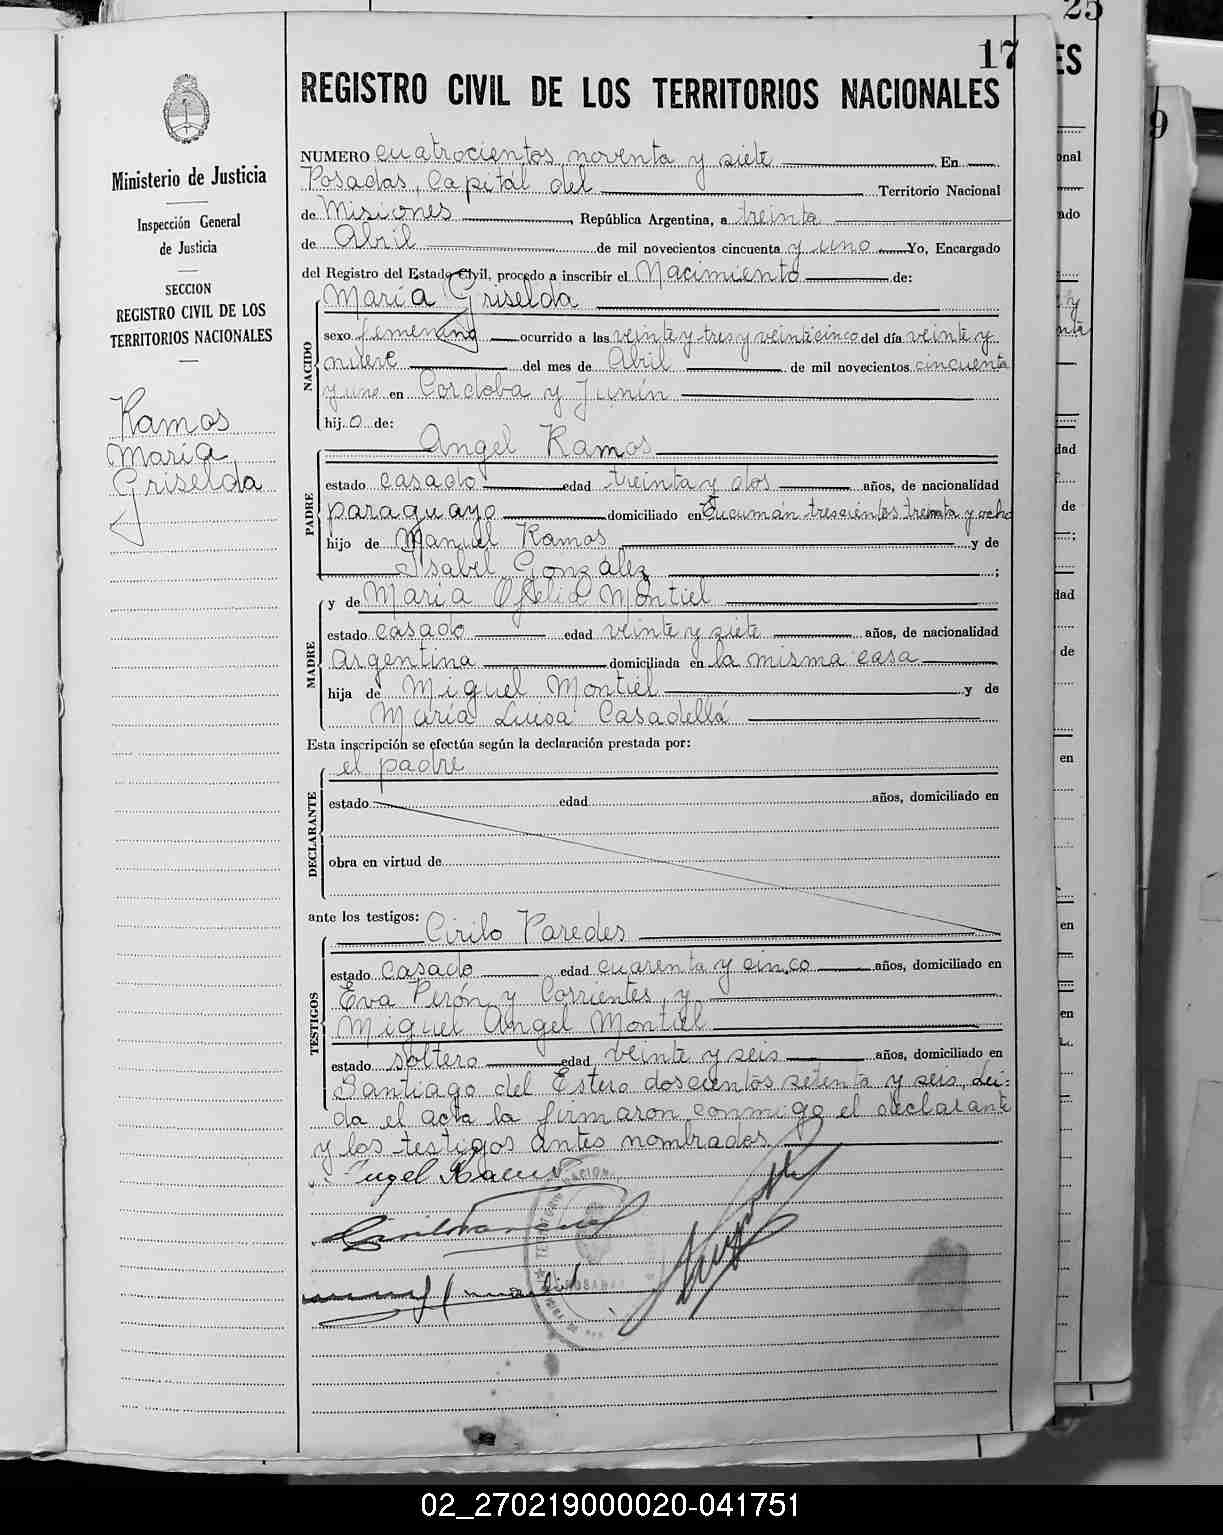 25
17
ES
9
REGISTRO CIVIL DE LOS TERRITORIOS NACIONALES
Ministerio de Justicia
Inspección General
de Justicia
SECCION
REGISTRO CIVIL DE LOS
TERRITORIOS NACIONALES
Ramos
María
Griselda
NUMERO cuatrocientos noventa y siete En
Posadas, Capital del Territorio Nacional
de Misiones, República Argentina, a treinta
de Abril de mil novecientos cincuenta y uno Yo, Encargado
del Registro del Estado Civil, procedo a inscribir el Nacimiento de:
María Griselda
NACIDO
sexo femenino ocurrido a las veinte y tres y veinticinco del día veinte y
nueve del mes de Abril de mil novecientos cincuenta
y uno en Cordoba y Junín
hij o de:
Angel Ramos
PADRE
estado casado edad treinta y dos años, de nacionalidad
paraguayo domiciliado en Tucumán trescientos treinta y ocho
hijo de Manuel Ramos y de
Isabel González ;
y de María Ofelia Montiel
MADRE
estado casado edad veinte y siete años, de nacionalidad
Argentina domiciliada en la misma casa
hija de Miguel Montiel y de
María Luisa Casadellá
Esta inscripción se efectúa según la declaración prestada por:
el padre
DECLARANTE
estado edad años, domiciliado en
obra en virtud de
ante los testigos: Cirilo Paredes
TESTIGOS
estado casado edad cuarenta y cinco años, domiciliado en
Eva Perón y Corrientes, y
Miguel Angel Montiel
estado soltero edad veinte y seis años, domiciliado en
Santiago del Estero doscientos setenta y seis, Lei:
da el acta la firmaron conmigo el declarante
y los testigos antes nombrados
Angel Ramos
02_270219000020-041751